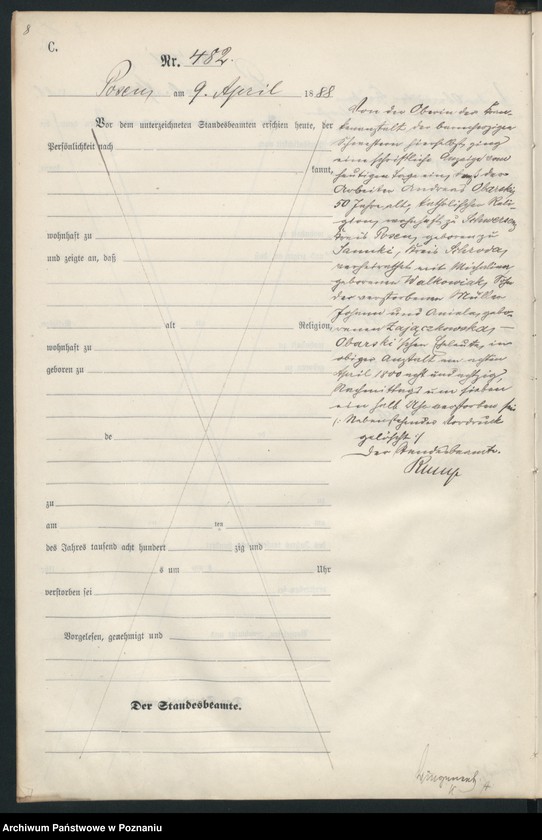 8
C.
Nr. 482.
Posen, am 9. April 1888
Vor dem unterzeichneten Standesbeamten erschien heute, der
Persönlichkeit nach
kannt,
wohnhaft zu
und zeigte an, daß
alt Religion,
wohnhaft zu
geboren zu
de
zu
am ten
des Jahres tausend acht hundert zig und
s um Uhr
verstorben sei
Vorgelesen, genehmigt und
Der Standesbeamte.
Von der Oberin der Kran-
kenanstalt der barmherzigen
Schwestern hierselbst, ging
eine schriftliche Anzeige vom
heutigen Tage ein, daß der
Arbeiter Andreas Obarski,
50 Jahre alt, katholischer Reli-
gion, wohnhaft zu Schwersenz
Kreis Posen, geboren zu
Kreis Schroda,
verheirathet mit Michalina
geborenen Walkowiak, Sohn
der verstorbenen Müller
Johann und Aniela, gebo-
renen Zajączkowska,
Obarski'schen Eheleute, in
obiger Anstalt am achten
April 1800 acht und achtzig,
Nachmittags um sieben
ein halb Uhr verstorben sei
/: Nebenstehendes Vordruck
gelöscht :/
Der Standesbeamte.
Archiwum Państwowe w Poznaniu